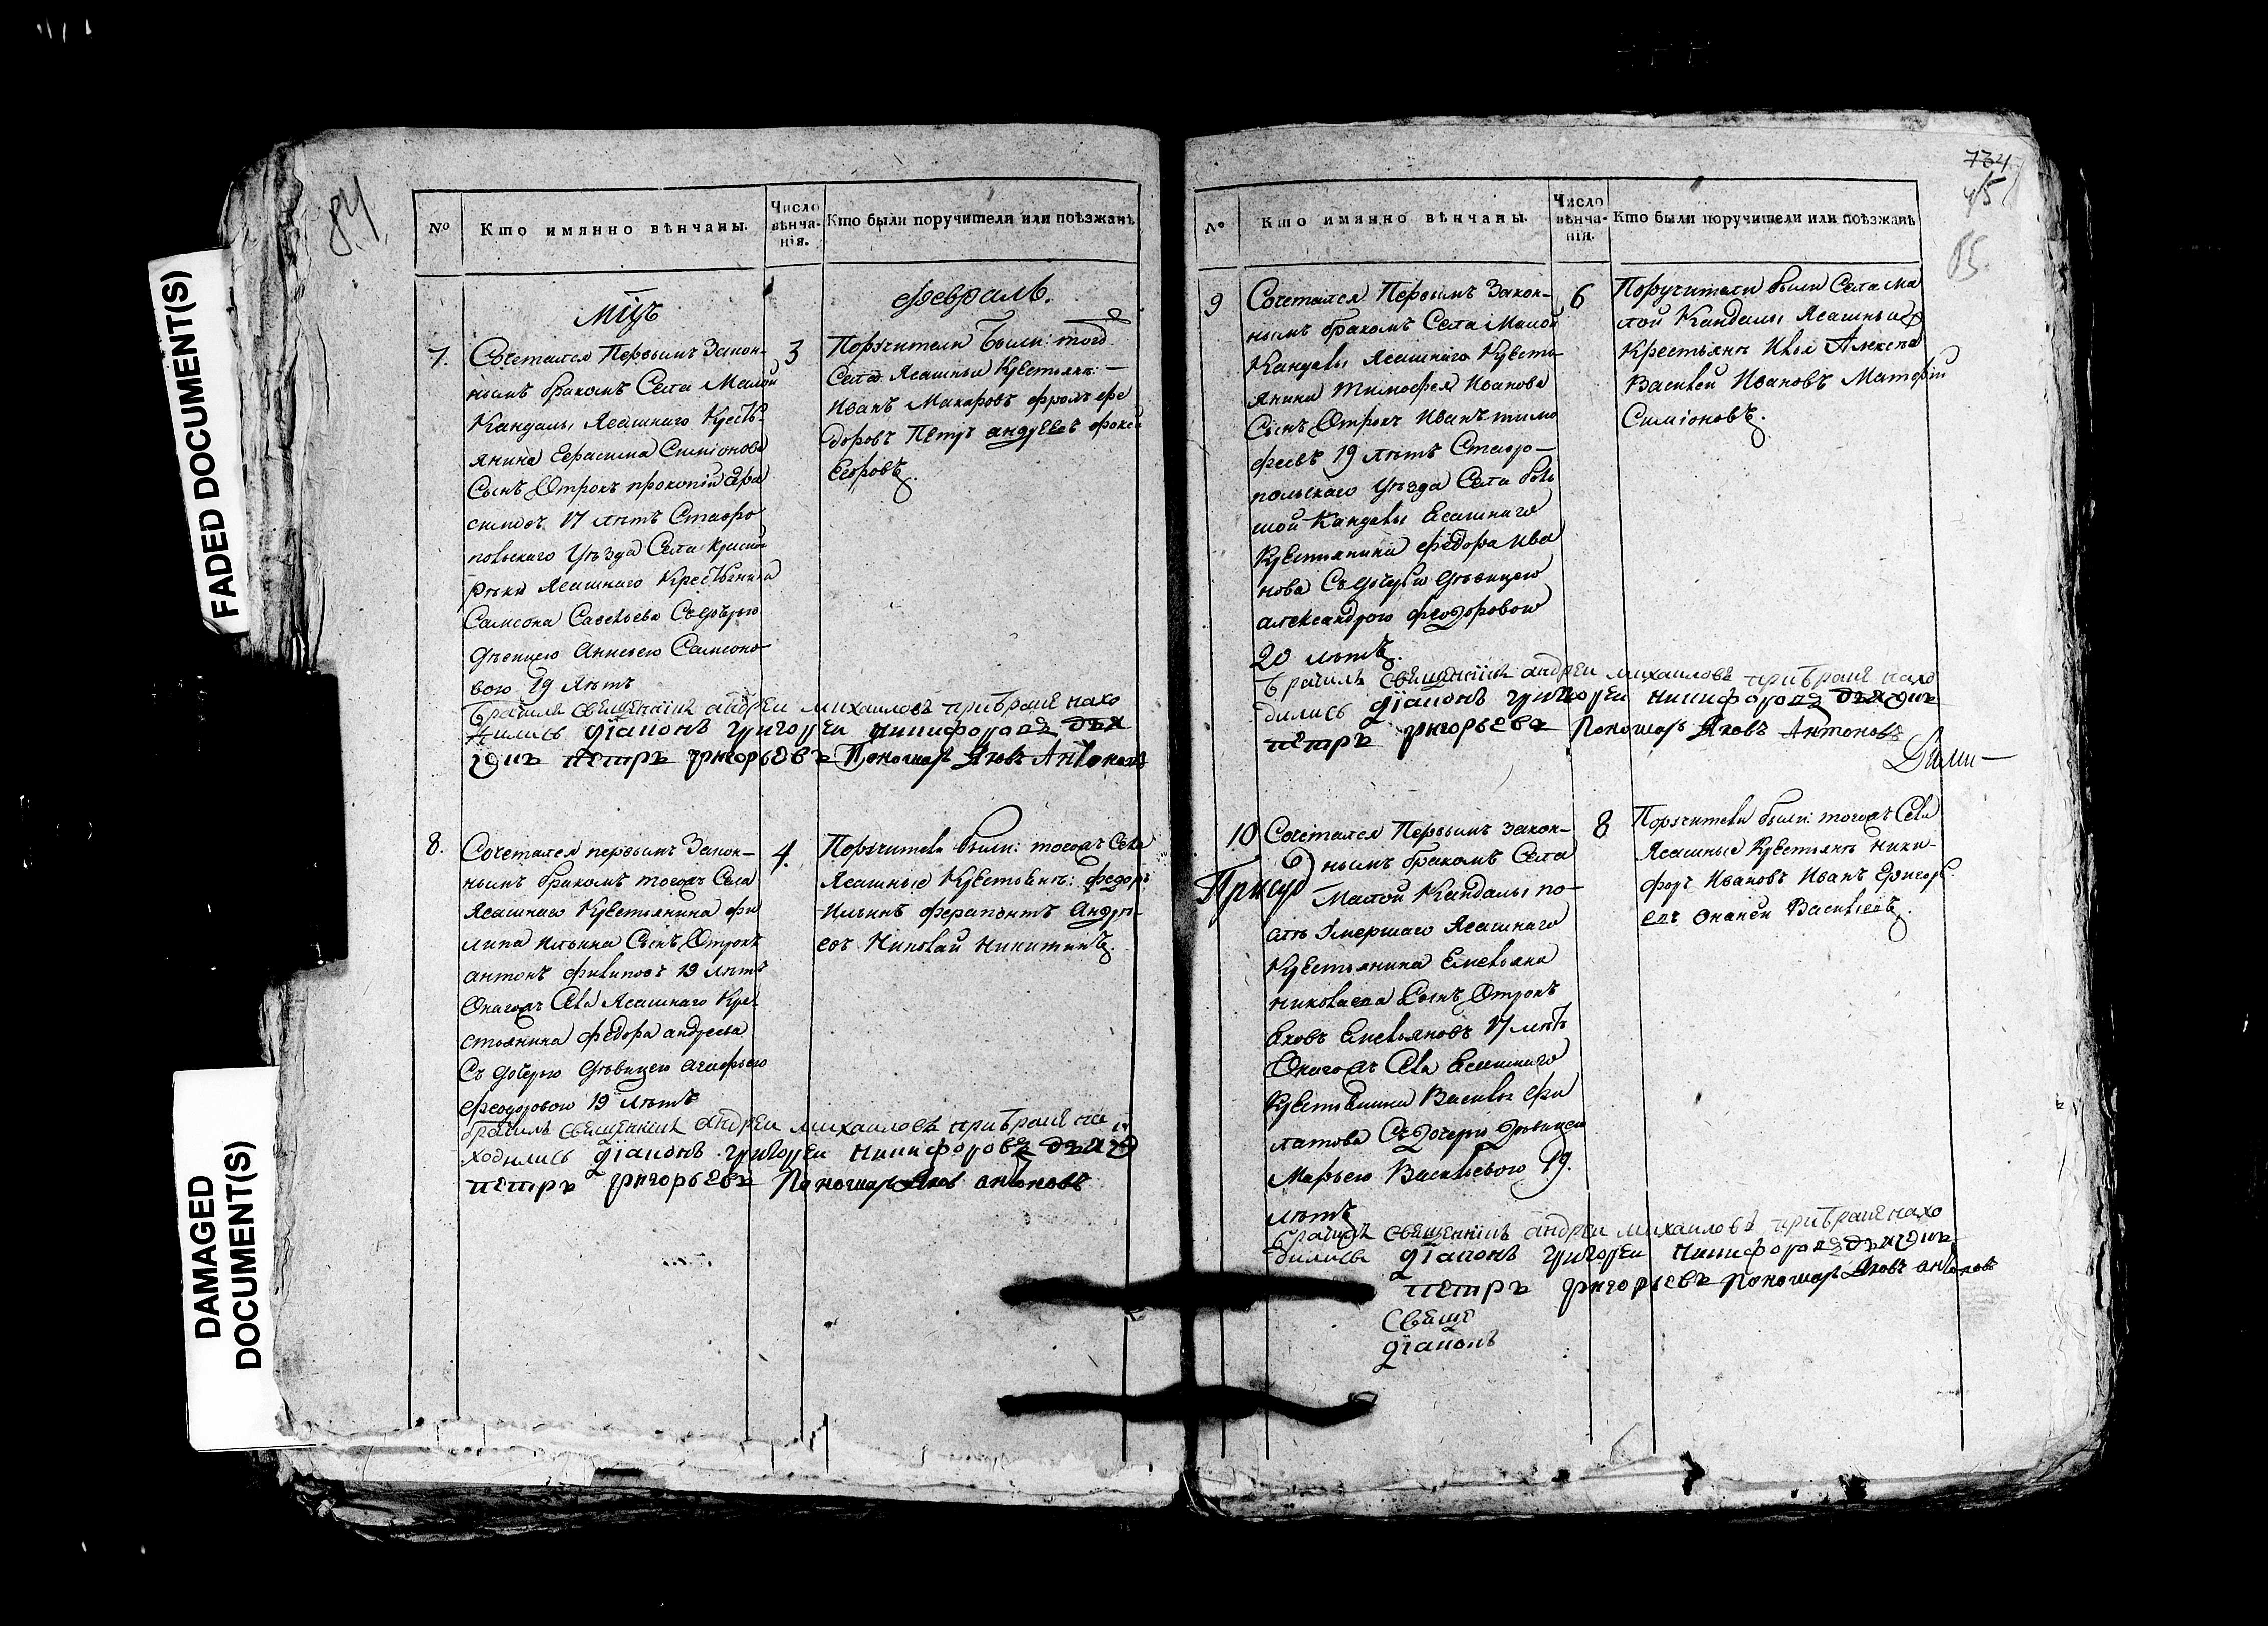 FADED DOCUMENT(S)
DAMAGED
DOCUMENT(S)
84
№
Кто имянно вѣнчаны.
Число вѣнча-нія.
Кто были поручители или поѣзжанѣ
Мцъ
февраль.
7.
Сочетался Первымъ Закон-
нымъ бракомъ Села Малой
Кандалы Ясашнаго Кресть-
янина Герасима Симіонова
Сынъ Отрокъ прокопій Гера
симовъ 17 лѣтъ Ставро
польскаго Уѣзда Села
рѣки Ясашнаго Крестьянина
Самсона Савельева Съ дочерью
дѣвицею Анисьею Самсоно
вою 19 лѣтъ
3
Поручители были: тогожъ
Села Ясашныя Крестьянѣ: —
Иванъ Макаровъ фролъ фе
доровъ Петръ андреевъ
Егоровъ.
брачилъ священникъ андреи михаиловъ при браке нахо
дились діаконъ григореи никифоровъ дья
чокъ петръ григорьевъ Пономарь Яковъ Антоновъ
8.
Сочетался первымъ Закон-
нымъ бракомъ тогожъ Села
Ясашнаго Крестьянина фи
липа ильина Сынъ Отрокъ
антонъ филиповъ 19 лѣтъ
Онагожъ Села Ясашнаго Кре
стьянина федора андреева
Съ дочерью дѣвицею агафьею
феодоровою 19 лѣтъ
4.
Поручители были: тогожъ Села
Ясашные Крестьянѣ: федоръ
Ильинъ ферапонтъ Андре-
евъ Николай Никитинъ.
брачилъ священникъ андреи михаиловъ при браке на
ходились діаконъ григореи никифоровъ дьячо
петръ григорьевъ Пономарь Яковъ антоновъ
734
45
85
№
Кто имянно вѣнчаны.
Число вѣнча-нія.
Кто были поручители или поѣзжанѣ
9
Сочетался Первымъ Закон-
нымъ бракомъ Села Малой
Кандалы Ясашнаго Кресть-
янина Тимофея Иванова
Сынъ Отрокъ Иванъ тимо
феевъ 19 лѣтъ Ставро—
польскаго Уѣзда Села боль
шой Кандалы Ясашнаго
Крестьянина федора Ива
нова Съ дочерью дѣвицею
александрою феодоровою
20 лѣтъ.
6
Поручители были Села Ма
лой Кандалы Ясашныя
Крестьянѣ Илья Алексѣевъ
Василей Ивановъ Матфей
Симіоновъ.
брачилъ священникъ андреи михаиловъ при браке нахо
дились діаконъ григореи никифоровъ дьячокъ
петръ григорьевъ Пономарь Яковъ Антоновъ
10
Сочетался Первымъ закон-
нымъ бракомъ Села
Малой Кандалы по-
слѣ Умершаго Ясашнаго
Крестьянина Емельяна
николаева Сынъ Отрокъ
Яковъ Емельяновъ 17 лѣтъ
Онагожъ Села Ясашнаго
Крестьянина Василья фи
латова Съ дочерью дѣвицею
Марьею Васильевою 19.
лѣтъ
8
Поручители были: тогожъ Села
Ясашные Крестьянѣ Ники-
форъ Ивановъ Иванъ Григорь
евъ Ананей Васильевъ.
брачилъ священникъ андреи михаиловъ при браке нахо
дились діаконъ григореи никифоровъ дьячокъ
петръ григорьевъ Пономарь Яковъ антоновъ
Свеще
діаконъ